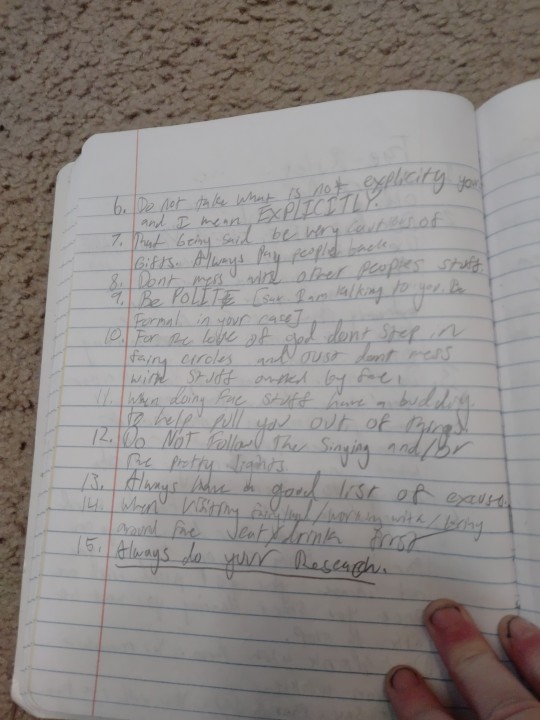 6. Do not take what is not explicity you
and I mean EXPLICITLY.
7. That being said be very cautious of
Gifts. Always Pay people back.
8. Dont mess with other peoples stuff.
9. Be POLITE [ I am talking to you. Be
Formal in your case]
10. For the love of god dont step in
fairy circles and Just dont mess
with stuff owned by fae.
11. When doing Fae stuff have a budding
To help pull you out of things.
12. Do NOT Follow the singing and/or
the pretty lights
13. Always have a good list of excuse
14. When Visiting fairyland/working with/being
around fae eat & drink first
15. Always do your Research.